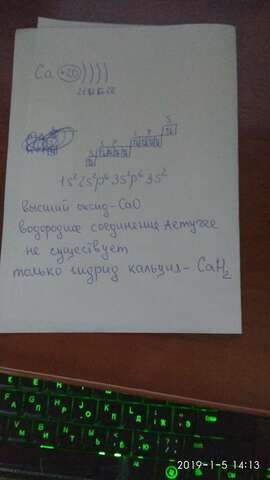 Ca +20 ))))
S
S P
S P
S
1S² 2S² p⁶ 3S² p⁶ 3S²
высший оксид - CaO
водородное соединение летучее
не существует
только гидрид кальция - CaH₂
2019-1-5 14:13